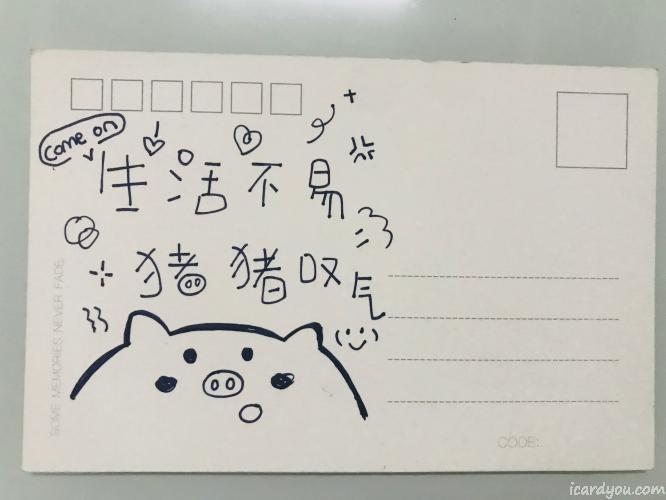 come on
生活不易
猪猪叹气
SOME MEMORIES NEVER FADE.
CODE:
icardyou.com